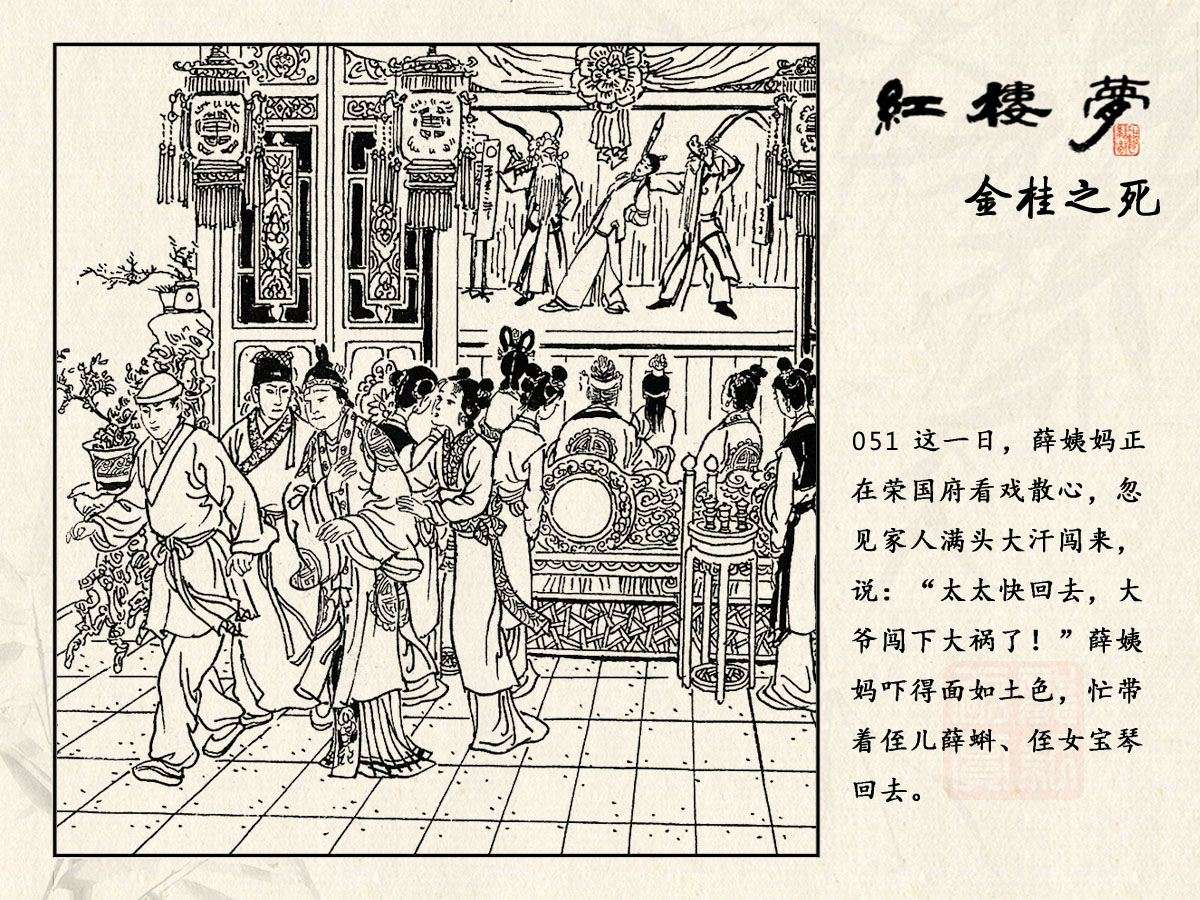 紅樓夢
金桂之死
051 这一日，薛姨妈正
在荣国府看戏散心，忽
见家人满头大汗闯来，
说：“太太快回去，大
爷闯下大祸了！”薛姨
妈吓得面如土色，忙带
着侄儿薛蝌、侄女宝琴
回去。